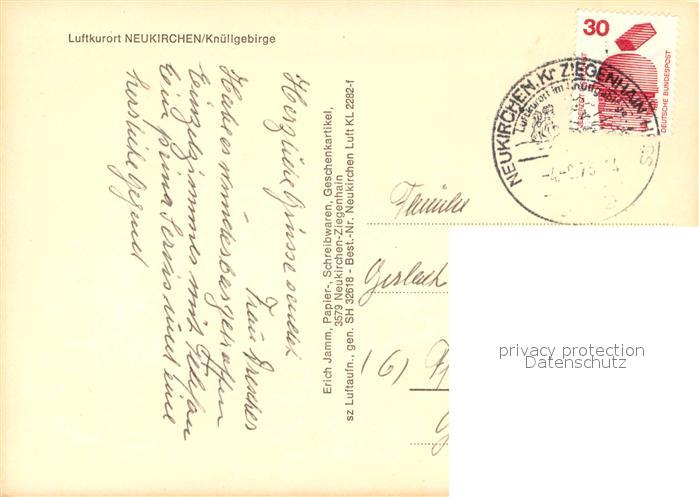 Luftkurort NEUKIRCHEN/Knüllgebirge
Herzliche Grüsse sendet
Frau
Habe es wunderbar getroffen
Einzelzimmer mit
prima Service und eine
herrliche Gegend
Erich Jamm, Papier-, Schreibwaren, Geschenkartikel,
3579 Neukirchen-Ziegenhain
sz Luftaufn., gen. SH 32618 - Best.-Nr. Neukirchen Luft KL 2282-f
30
DEUTSCHE BUNDESPOST
NEUKIRCHEN, Kr ZIEGENHAIN
Luftkurort im Knüllgebirge
Familie
Gerlach
(6)
privacy protection
Datenschutz